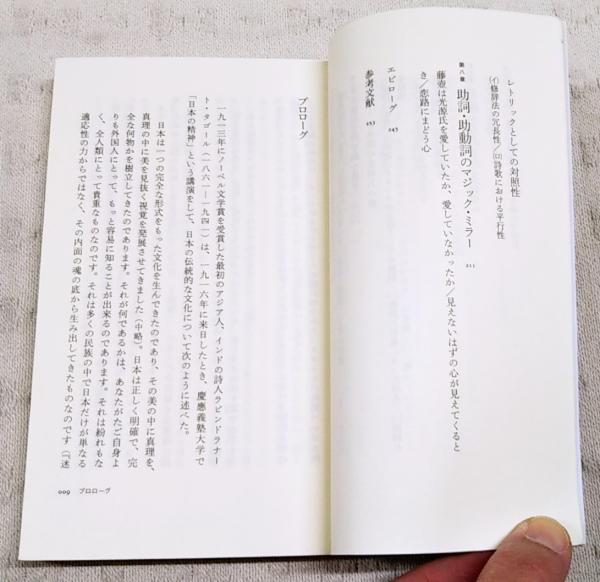 レトリックとしての対照性
(イ)修辞法の冗長性／(ロ)詩歌における平行性
第八章 助詞・助動詞のマジック・ミラー 211
藤壺は光源氏を愛していたか、愛していなかったか／見えないはずの心が見えてくると
き／恋路にまどう心
エピローグ 245
参考文献 253
プロローグ
一九一三年にノーベル文学賞を受賞した最初のアジア人、インドの詩人ラビンドラナー
ト・タゴール(一八六一―一九四一)は、一九一六年に来日したとき、慶應義塾大学で
「日本の精神」という講演をして、日本の伝統的な文化について次のように述べた。
日本は一つの完全な形式をもった文化を生んできたのであり、その美の中に真理を、
真理の中に美を見抜く視覚を発展させてきました(中略)。日本は正しく明確で、完
全な何物かを樹立してきたのであります。それが何であるかは、あなたがたご自身よ
りも外国人にとって、もっと容易に知ることが出来るのであります。それは紛れもな
く、全人類にとって貴重なものなのです。それは多くの民族の中で日本だけが単なる
適応性の力からではなく、その内面の魂の底から生み出してきたものなのです(『迷
009 プロローグ